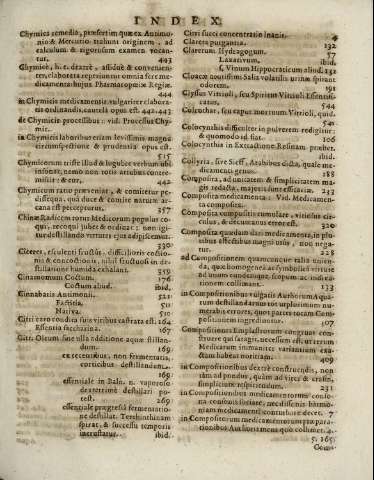 INDEX
Chymica remedia, præsertim quæ ex Antimo-
nio & Mercurio trahunt originem, ad
calculum & rigorosum examen vocan-
tur. 443
Chymicè, h. e. dextrè, assiduè & convenien-
ter, elaborata reprimunt omnia ferè me-
dicamenta hujus Pharmacopœiæ Regiæ.
444
in Chymicis medicamentis vulgariter elabora-
tis ordinandis cautela opus est. 442. 443
de Chymicis processibus: vid. Processus Chy-
mic.
in Chymicis laboribus etiam levissimis magna
circumspectione & prudentia opus est.
515
Chymicorum triste illud & lugubre verbum ubi
invenitur, nemo non totis artubus contre-
miscit; & cur, 442
Chymicum ratio præveniat, & comitetur pe-
dissequa, quâ duce & comite naturæ ar-
cana est perceptura. 357
Chinæ Radicem totus Medicorum populus co-
qui, recoqui jubet & ordinat: non igi-
tur destillanda virtutis ejus adipiscendæ.
330
Ciceres, esculenti fructus, difficilioris coctio-
nis & concoctionis, nihil fructuosi in de-
stillatione humida exhalant. 359
Cinamomum Coctum. 176
Coctum aliud. ibid.
Cinnabaris Antimonii. 521
Factitia. 511
Nativa. 510
Citri caro condita suis viribus castrata est. 164
Essentia saccharina. 167
Citr. Oleum sine ulla additione aquæ stillan-
dum. 169.
ex recentibus, non fermentatis,
corticibus destillandum.
169.
essentiale in Baln. n. vaporoso
dexterrimè destillari po-
test. 269
essentiale progressâ fermentatio-
ne destillat. Terebinthinam
spirat, & successu temporis
incrustatur. ibid.
Citri succi concentratio inanis. 4
Clareta purgantia. 132
Claretum Hydragogum. 57
Laxativum. ibid.
s. Vinum Hippocraticum aliud. 132
Cloacæ acutissimi Salis volatilis urinæ spirant
odorem. 241
Clyssus Vitrioli, seu Spiritus Vitrioli Essentifi-
catus. 544
Colcothar, seu caput mortuum Vitrioli, quid.
541
Colocynthis difficulter in pulverem redigitur:
& quomodo id fiat. 106
Colocynthis in Extractione Resinam præbet.
ibid.
Collyria, sive Sieff, Arabibus dicta, quale me-
dicamenti genus. 188
Composita, ad unitatem & simplicitatem ma-
gis redacta, majoris sunt efficaciæ. 232
Composita medicamenta: Vid. Medicamen-
ta composita.
Composita compositis cumulare, vitiosus cir-
culus, & decumanus error est. 320
Composita quædam dari medicamenta, in plu-
ribus effectibus magni usus, non nega-
tur. 228
ad Compositionem quamcunque talia unien-
da, quæ homogeneæ ac symbolicæ virtutis
ad unum conducunt, scopum ac indica-
tionem collimant. 133
in Compositionibus vulgatis Authorum Aqua-
rum destillandarum tot turpissimi innu-
merabiles errores, quot partes totam Com-
positionem ingrediuntur. 407
in Compositionibus Emplastrorum congruus con-
struere qui satagit, necessum est, ut rerum
Medicarum immanitæ variantium exa-
ctam habeat notitiam. 409
in Compositionibus dextrè construendis, non
tàm ad pondus, quàm ad vires & crasin,
simplicium respiciendum. 231
in Compositionibus medicamentorum confu-
sio continuis sociata, medissenis harmo-
niam medicamenti contribuere decet. 7
in Compositorum medicamentorum præpara-
tionibus Authoritatem quis collimet. 4.
5. 265
Com-